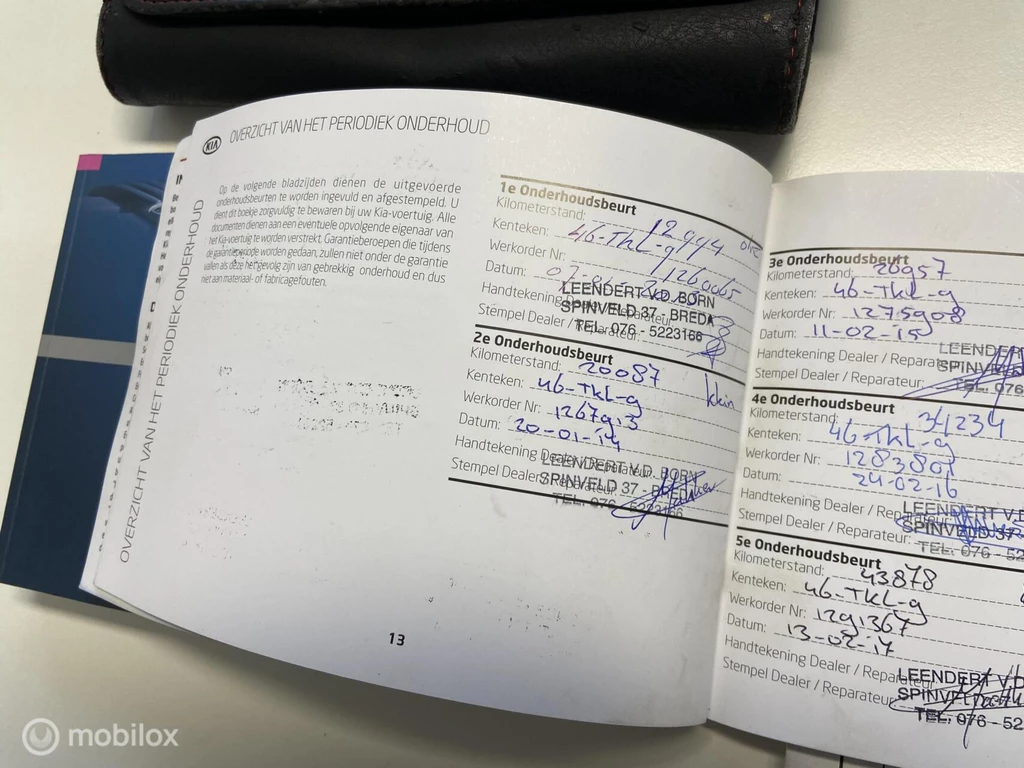 KIA OVERZICHT VAN HET PERIODIEK ONDERHOUD
OVERZICHT VAN HET PERIODIEK ONDERHOUD
Op de volgende bladzijden dienen de uitgevoerde
onderhoudsbeurten te worden ingevuld en afgestempeld. U
dient dit boekje zorgvuldig te bewaren bij uw Kia-voertuig. Alle
documenten dienen aan een eventuele opvolgende eigenaar van
het Kia-voertuig te worden verstrekt. Garantieberoepen die tijdens
de garantieperiode worden gedaan, zullen niet onder de garantie
vallen als deze het gevolg zijn van gebrekkig onderhoud en dus
niet aan materiaal- of fabricagefouten.
1e Onderhoudsbeurt
Kilometerstand: 12994 olie
Kenteken: 46-TKL-9
Werkorder Nr: 1260065
Datum: 07-
Handtekening Dealer / Reparateur:
Stempel Dealer / Reparateur:
LEENDERT V.D. BORN
SPINVELD 37 - BREDA
TEL. 076 - 5223166
2e Onderhoudsbeurt
Kilometerstand: 20087 klein
Kenteken: 46-TKL-9
Werkorder Nr: 1267913
Datum: 20-01-14
Handtekening Dealer / Reparateur:
Stempel Dealer / Reparateur:
LEENDERT V.D. BORN
SPINVELD 37 - BREDA
TEL. 076 - 5223166
13
3e Onderhoudsbeurt
Kilometerstand: 26957
Kenteken: 46-TKL-9
Werkorder Nr: 1275908
Datum: 11-02-15
Handtekening Dealer / Reparateur:
Stempel Dealer / Reparateur:
LEENDERT
SPINVEL
TEL. 076
4e Onderhoudsbeurt
Kilometerstand: 34234
Kenteken: 46-TKL-9
Werkorder Nr: 1283801
Datum: 24-02-16
Handtekening Dealer / Reparateur:
Stempel Dealer / Reparateur:
LEENDERT V.D
SPINVELD 37
TEL. 076 - 52
5e Onderhoudsbeurt
Kilometerstand: 43878
Kenteken: 46-TKL-9
Werkorder Nr: 1291367
Datum: 13-02-17
Handtekening Dealer / Reparateur:
Stempel Dealer / Reparateur:
LEENDERT V.D
SPINVEL
TEL. 076 - 52
mobilox